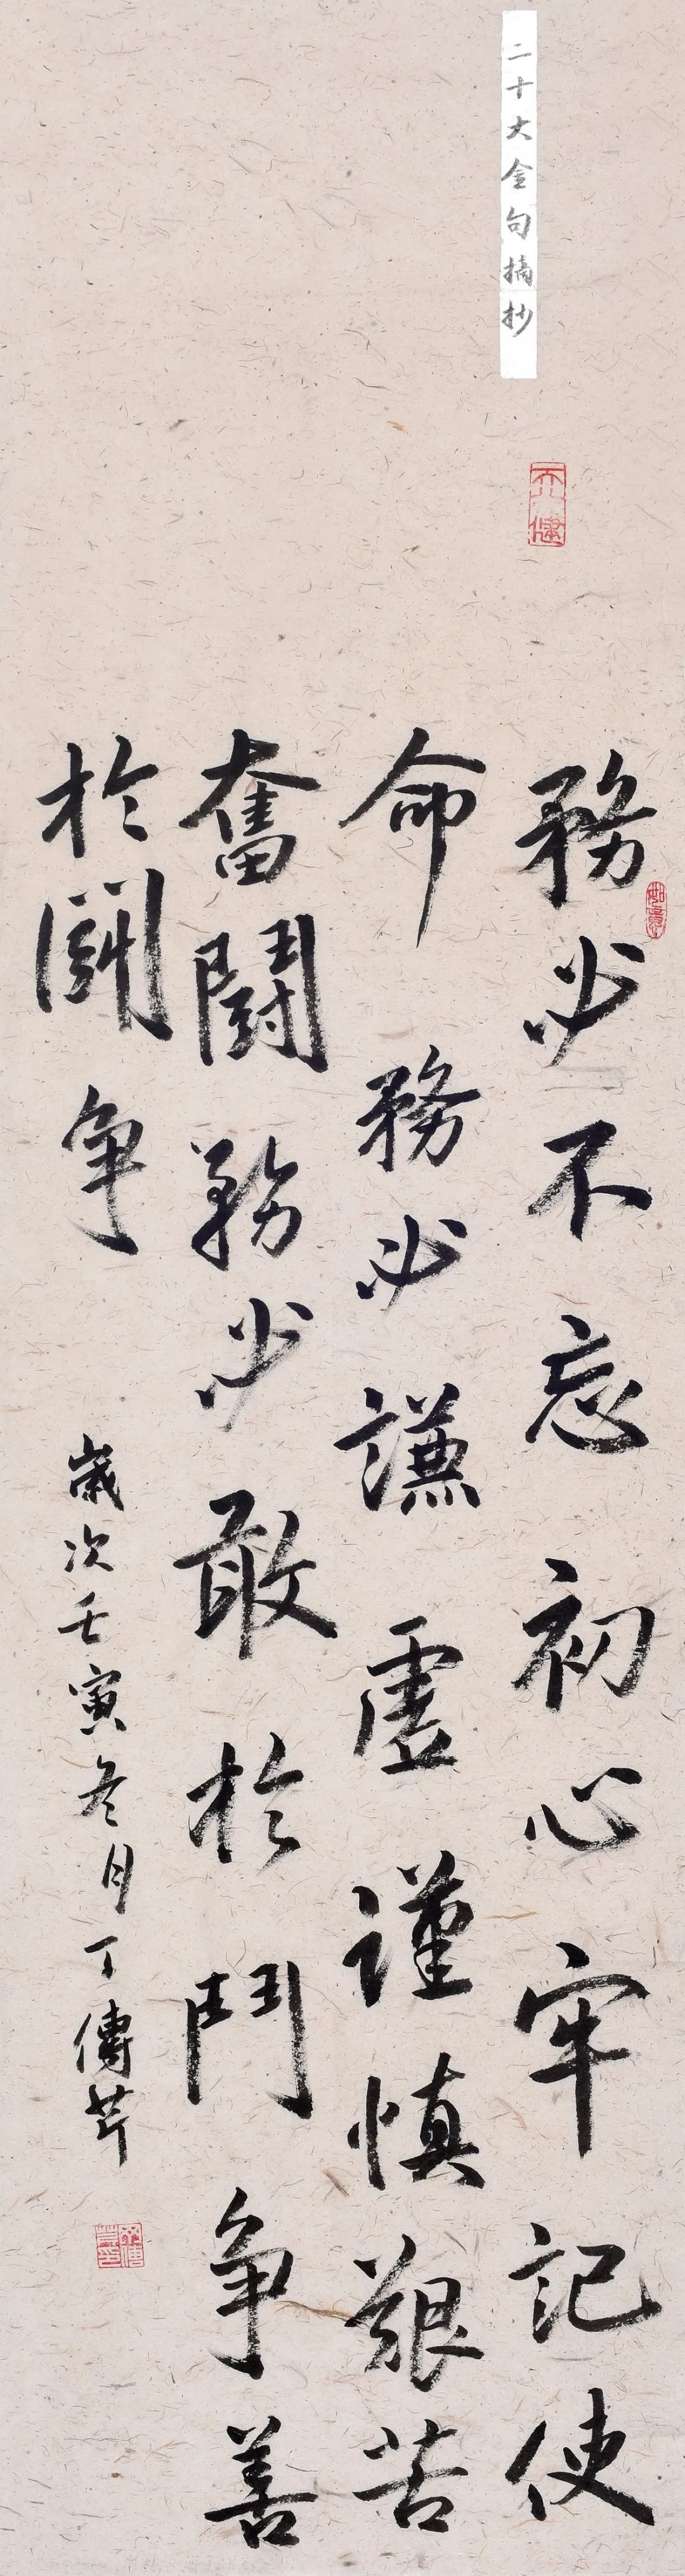 二十大金句摘抄
務必不忘初心牢記使
命務必謙虛謹慎艱苦
奮鬪務必敢於鬥争善
於鬪争
歲次壬寅冬月丁傳芹